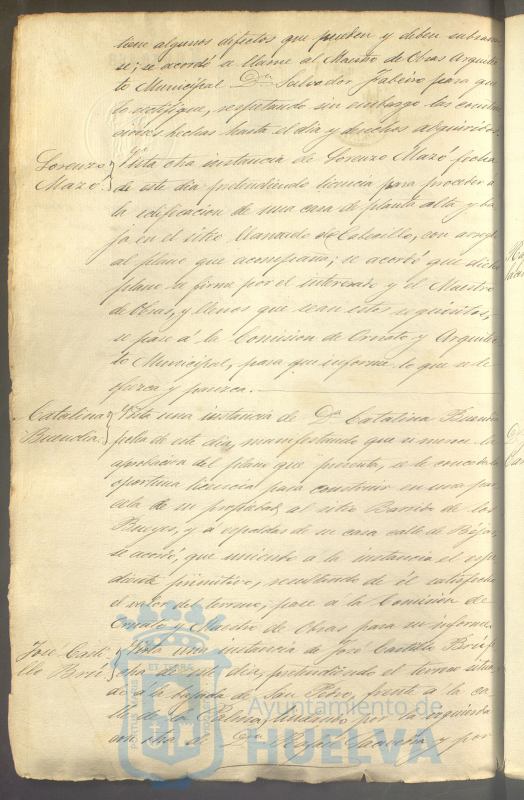 tiene algunos defectos que pueden y deben subsanar
se; se acordó se llame al Maestro de Obras Arquitec
to Municipal Dn Salvador para que
lo rectifique, respetando sin embargo las construc
ciones hechas hasta el día y derechos adquiridos.
Lorenzo Mazó. Vista otra instancia de Lorenzo Mazó fecha
de este dia pretendiendo licencia para proceder á
la edificacion de una casa de planta alta y ba
ja en el sitio llamado del Cabecillo, con arreglo
al plano que acompaña; se acordó que dicho
plano se firme por el interesado y el Maestro
de Obras, y llenos que sean estos requisitos,
se pase á la Comision de Ornato y Arquitec
to Municipal, para que informe lo que se le
ofrezca y parezca.
Catalina Vista una instancia de Dª Catalina
fecha de este dia, manifestando que si merece la
aprobacion del plano que presenta, se le conceda la
oportuna licencia para construir en una par
cela de su propiedad, al sitio Barrio de los
Bueyes, y á espaldas de su casa calle de Béjar,
se acordó, que uniendo á la instancia el espe
diente primitivo, resultando de él satisfecho
el valor del terreno, pase á la Comision de
Ornato y Maestro de Obras para su informe.
José Casti
llo Brú Vista una instancia de José Castillo Brú fe
cha de este dia, pretendiendo el terreno situa
do á la bajada de San Pedro, frente á la ca
lle de la Palma, lindando por la izquierda
con otro de Dn Rafael y por
ET TERRÆ
Ayuntamiento de
HUELVA